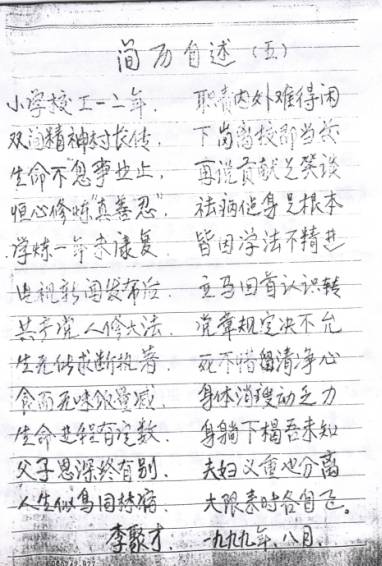 简历自述(五)
小学校工一二年, 职责内外难得闲
双沟精神村长传, 下岗离校即当被
生命不"息"事业止, 再说贡献是癸谈
恒心修炼"真善忍", 祛病健身是根本
学炼一年未康复, 皆因学法不精进
电视新闻发布后, 立马回首认识转
共产党人修大法, 党章规定决不允
生无所求断执著, 死不惜留清净心
食而无味饭量减, 身体消瘦动乏力
生命进程有定数, 身躺下榻吾未知
父子恩深终有别, 夫妇义重也分离
人生似鸟同林宿, 大限来时各自飞。
李聚才, 一九九九年八月